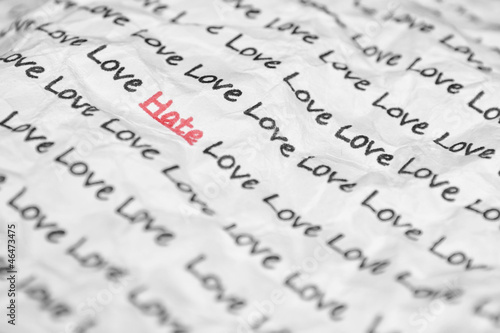 Love Love
Love Love Love Love
Love Love Love Love Love
Love Love Love Love Love Love
Love Love Love Love Love Love Love
Love Love Hate Love Love Love Love
Love Love Love Love Love Love Love
Love Love Love Love Love
Love Love Love
Love Love
Adobe Stock | #46473475